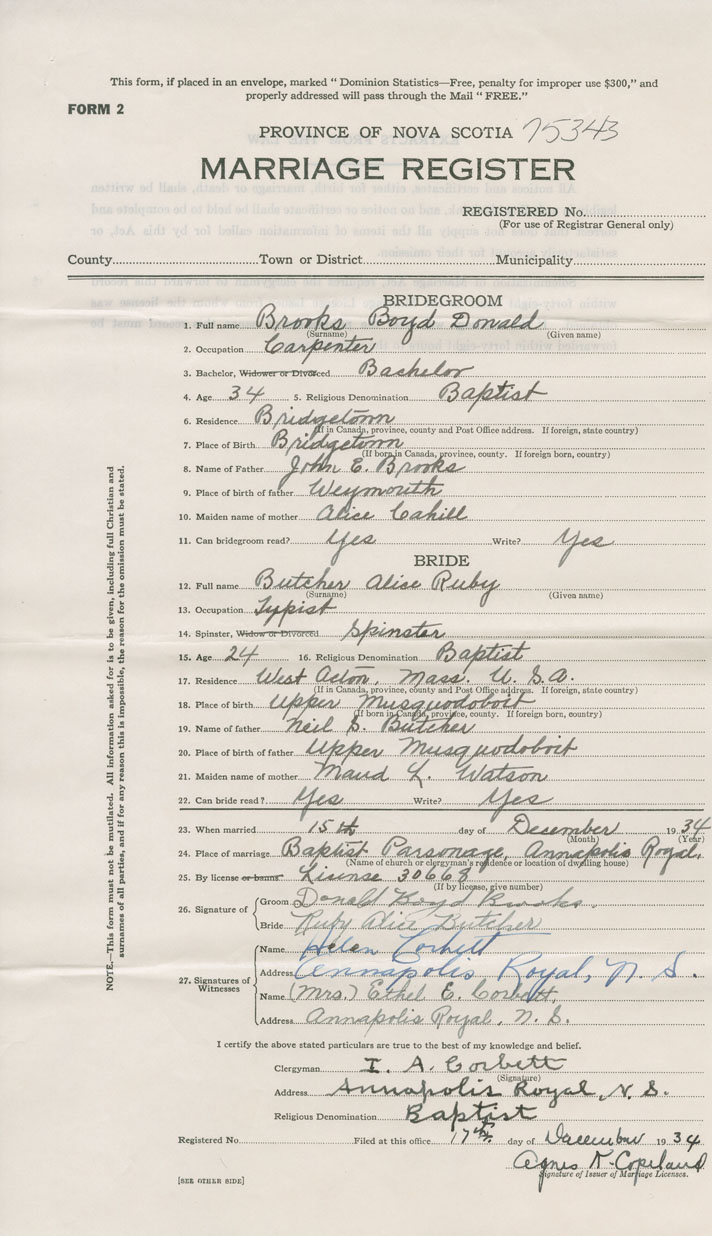 This form, if placed in an envelope, marked “ Dominion Statistics—Free, penalty for improper use $300,” and
properly addressed will pass through the Mail “ FREE.”
FORM 2
PROVINCE OF NOVA SCOTIA 75343
MARRIAGE REGISTER
REGISTERED No.
(For use of Registrar General only)
County Town or District Municipality
BRIDEGROOM
1. Full name Brooks Boyd Donald
(Surname) (Given name)
2. Occupation Carpenter
3. Bachelor, Widower or Divorced Bachelor
4. Age 34 5. Religious Denomination Baptist
6. Residence Bridgetown
(If in Canada, province, county and Post Office address. If foreign, state country)
7. Place of Birth Bridgetown
(If born in Canada, province, county. If foreign born, country)
8. Name of Father John E. Brooks
9. Place of birth of father Weymouth
10. Maiden name of mother Alice Cahill
11. Can bridegroom read? Yes Write? Yes
BRIDE
12. Full name Butcher Alice Ruby
(Surname) (Given name)
13. Occupation Typist
14. Spinster, Widow or Divorced Spinster
15. Age 24 16. Religious Denomination Baptist
17. Residence West Acton, Mass. U. S. A.
(If in Canada, province, county and Post Office address. If foreign, state country)
18. Place of birth Upper Musquodoboit
(If born in Canada, province, county. If foreign born, country)
19. Name of father Neil S. Butcher
20. Place of birth of father Upper Musquodoboit
21. Maiden name of mother Maud L. Watson
22. Can bride read? Yes Write? Yes
23. When married 15th day of December 1934
(Month) (Year)
24. Place of marriage Baptist Parsonage, Annapolis Royal,
(Name of church or clergyman's residence or location of dwelling house)
25. By license or banns Lisense 30668
(If by license, give number)
26. Signature of Groom Donald Boyd Brooks.
Bride Ruby Alice Butcher
27. Signatures of Witnesses
Name Helen Corbett
Address Annapolis Royal, N. S.
Name (Mrs.) Ethel E. Corbett,
Address Annapolis Royal, N. S.
I certify the above stated particulars are true to the best of my knowledge and belief.
Clergyman I. A. Corbett
(Signature)
Address Annapolis Royal, N. S.
Religious Denomination Baptist
Registered No. Filed at this office 17th. day of December 1934
Agnes K. Copeland
Signature of Issuer of Marriage Licenses.
[SEE OTHER SIDE]
NOTE.—This form must not be mutilated. All information asked for is to be given, including full Christian and
surnames of all parties, and if for any reason this is impossible, the reason for the omission must be stated.